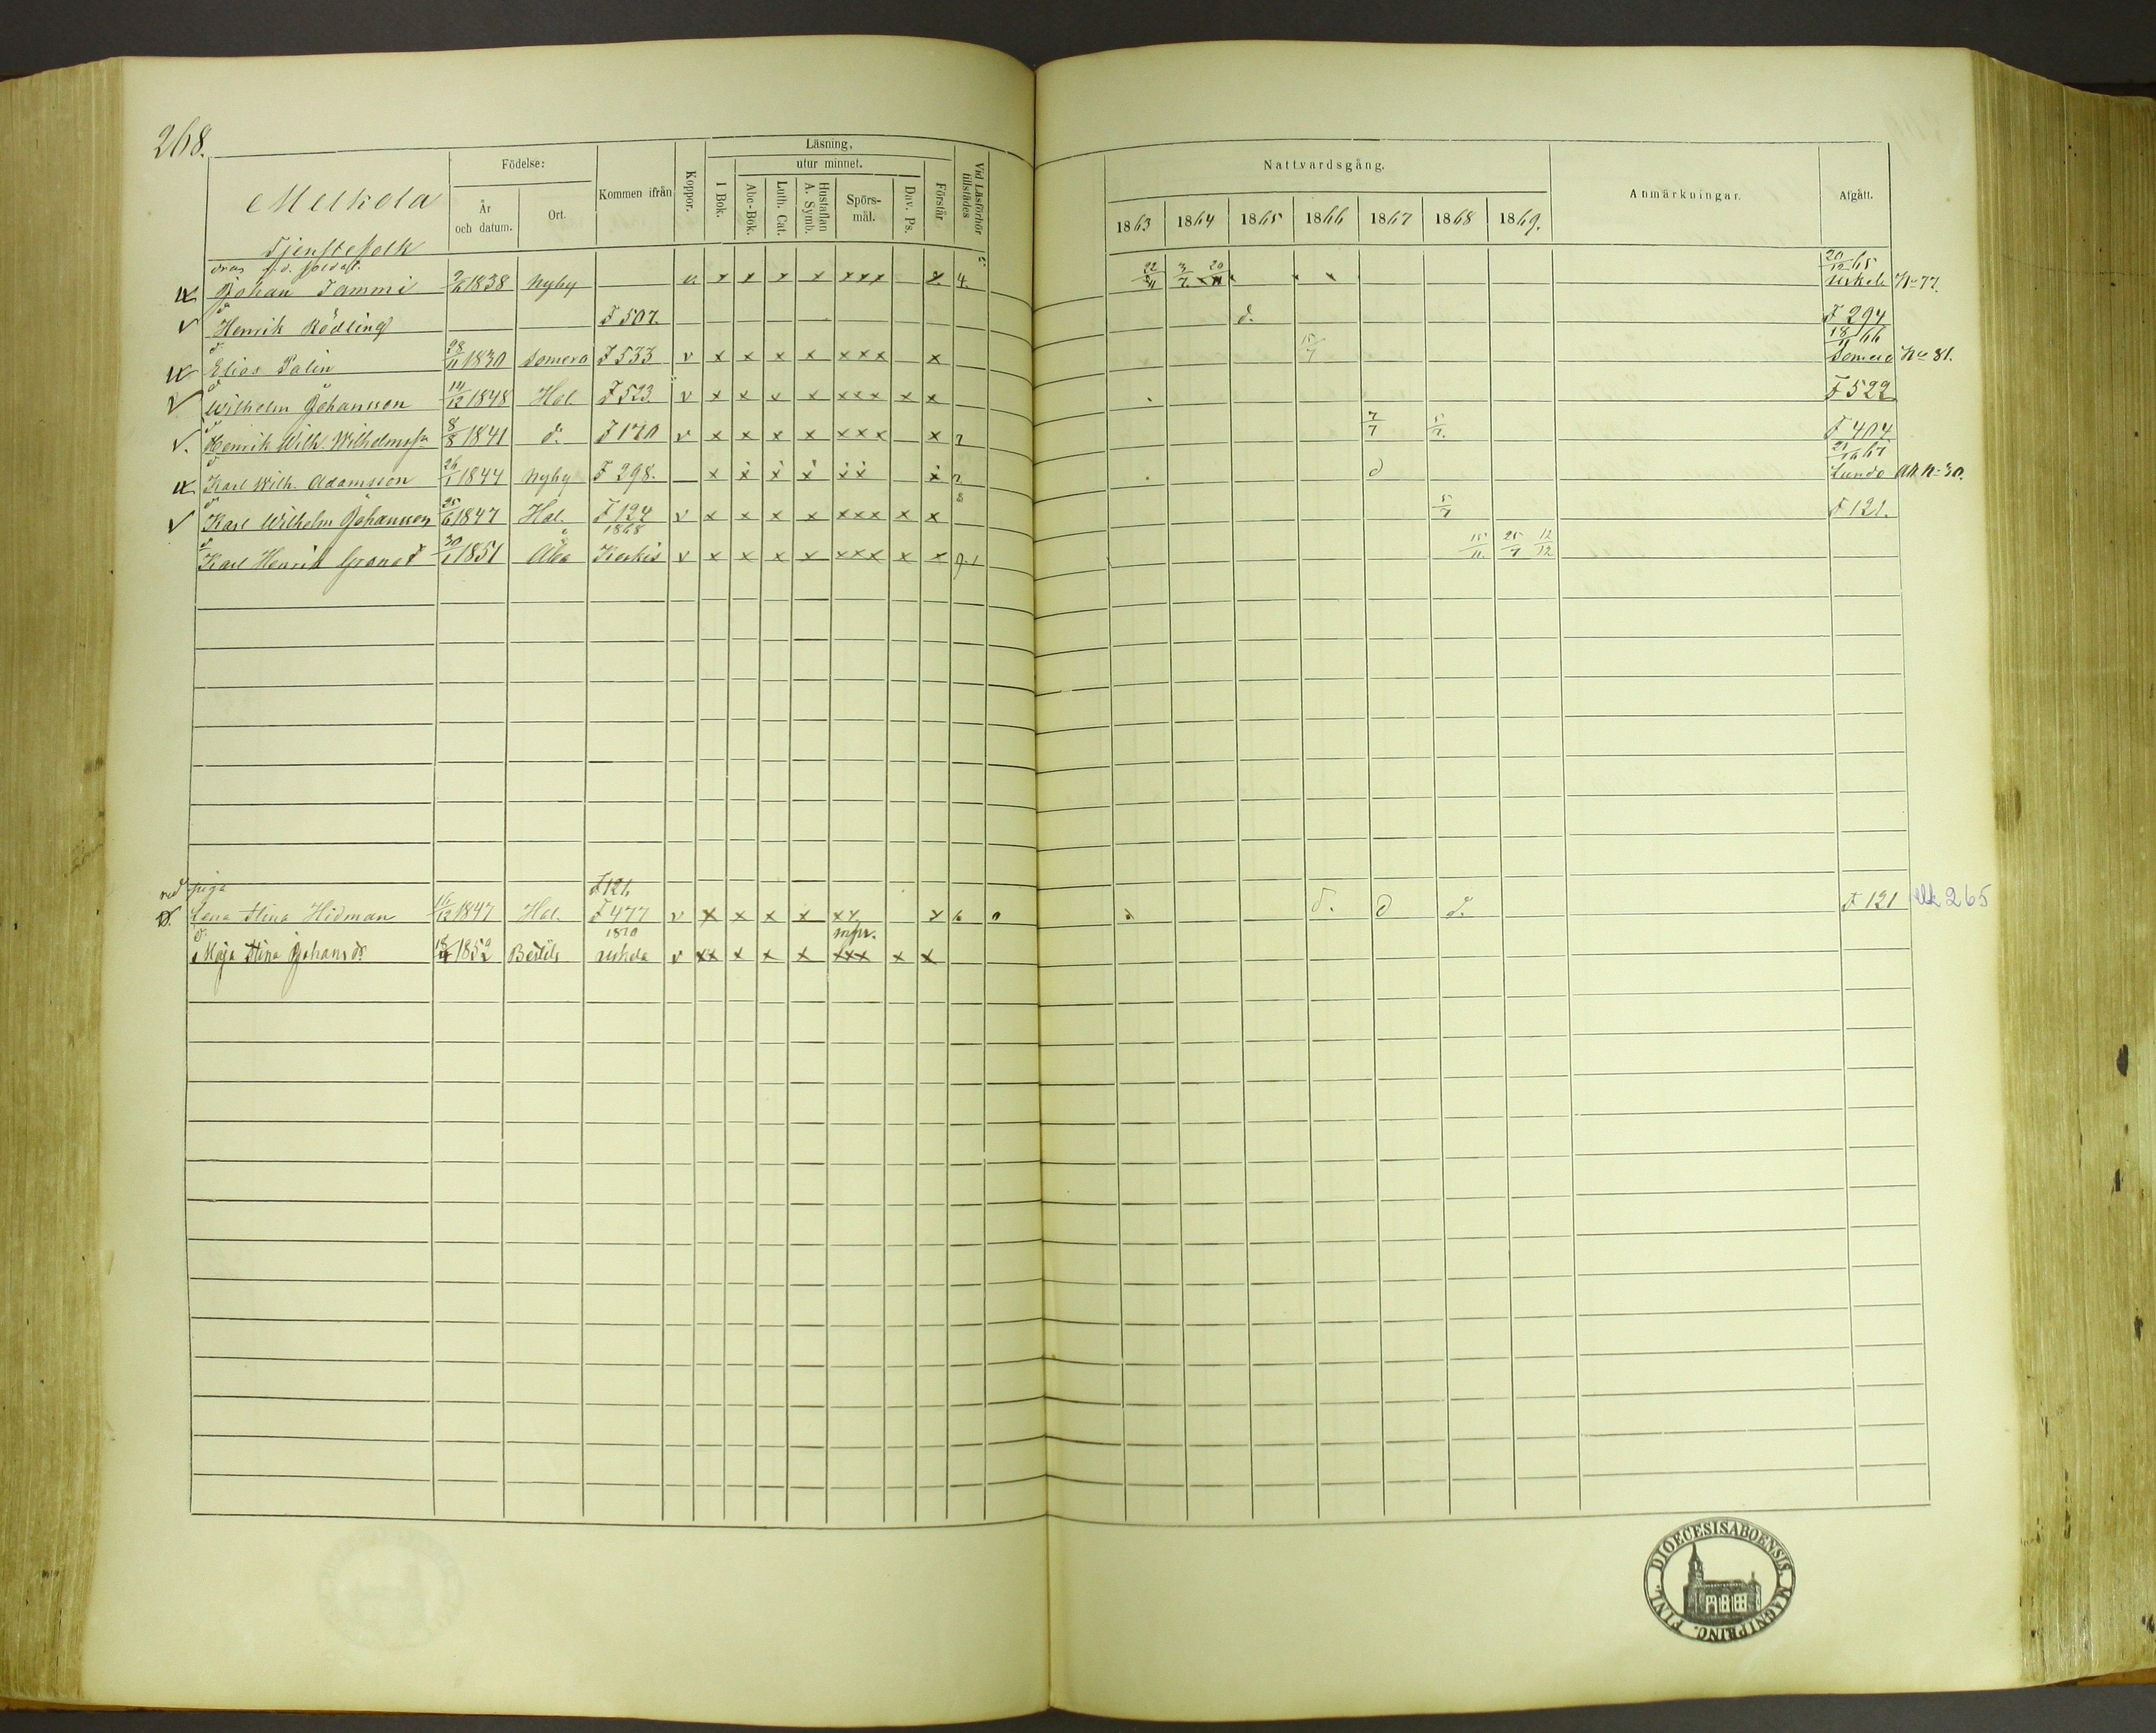 268.
Melkola
Tjenstefolk
Födelse:
År och datum.
Ort.
Kommen ifrån
Koppor.
Läsning,
I Bok.
utur minnet.
Abc-Bok.
Luth. Cat.
Hustaflan A. Symb.
Spörs-mål.
Dav. Ps.
Förstår
Vid Läsförhör tillstädes
Nattvardsgång.
1863 1864 1865 1866 1867 1868 1869.
Anmärkningar.
Afgått.
dräng f.d. soldat.
Johan Tammi 1838 Nyby x x x x xxx x 4. 22/11 3/7 20/11 20/12 65 Uskela No 77.
d:o Henrik Rödling F 507. d. F 294
d:o Elias Palin 28/11 1830 Somero F 533 v x x x x xxx x 15/7 18/11 66 Somero No 81.
d:o Wilhelm Johansson 14/12 1848 Hal. F 523 v x x x x xxx x x F 522
d:o Henrik Wilh. Wilhelmss:n 8/8 1841 d:o F 170 v x x x x xxx x 2 7/7 5/7. F 404
d:o Karl Wilh. Adamsson 26/1 1844 Nyby F 298. x x x x xx x 2 d Lundo No 30.
d:o Karl Wilhelm Johansson 25/6 1847 Hal. F 124 v x x x x xxx x x 5/7 F 121.
1868
d:o Karl Henrik Granat 30/1 1851 Åbo Kiskis v x x x x xxx x x 9.1 15/11. 25/7 12/12
piga F 121,
Lena Stina Hidman 16/12 1847 Hal. F 477 v x x x x xx x 6 0 d. d d. F 121 265
1870
d:o Maja Stina Johansd:r 1852 Bertils uskela v xx x x x xxx x x
DIOECESIS ABOENSIS. MAGNI PRINC. FINL.